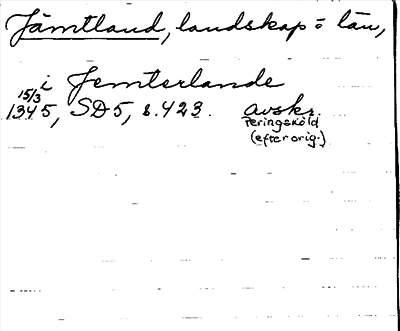 Jämtland, landskap o län,
i Jemterlande
15/3 1345, SD 5, s. 423. avskr.
Peringskiöld
(efter orig.)